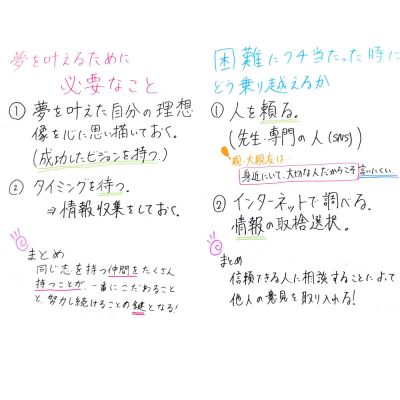 夢を叶えるために
必要なこと
① 夢を叶えた自分の理想
像を心に思い描いておく。
(成功したビジョンを持つ。)
② タイミングを待つ。
⇒情報収集をしておく。
まとめ
同じ志を持つ仲間をたくさん
持つことが、一番にこだわること
と、努力し続けることの鍵となる!
困難にブチ当たった時に
どう乗り越えるか
① 人を頼る。
(先生・専門の人(SNS))
親・大親友は
身近にいて、大切な人だからこそ言いにくい。
② インターネットで調べる。
情報の取捨選択。
まとめ
信頼できる人に相談することによって
他人の意見を取り入れる!